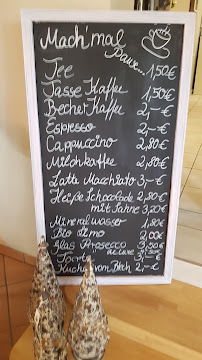 Mach'mal
Pause...
Tee 1,50€
Tasse Kaffee 1,50€
Becher Kaffee 2,-€
Espresso 2,-€
Cappuccino 2,80€
Milchkaffee 2,80€
Latte Macchiato 3,-€
Heiße Schocolade 2,80€
mit Sahne 3,20€
Mineralwasser 1,80€
Bio Limo 2,00€
Glas Prosecco 3,50€
Torte 3,-€
Kuchen vom Blech 2,-€